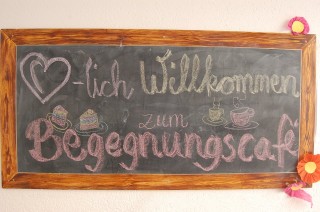 -lich Willkommen
zum
Begegnungscafé